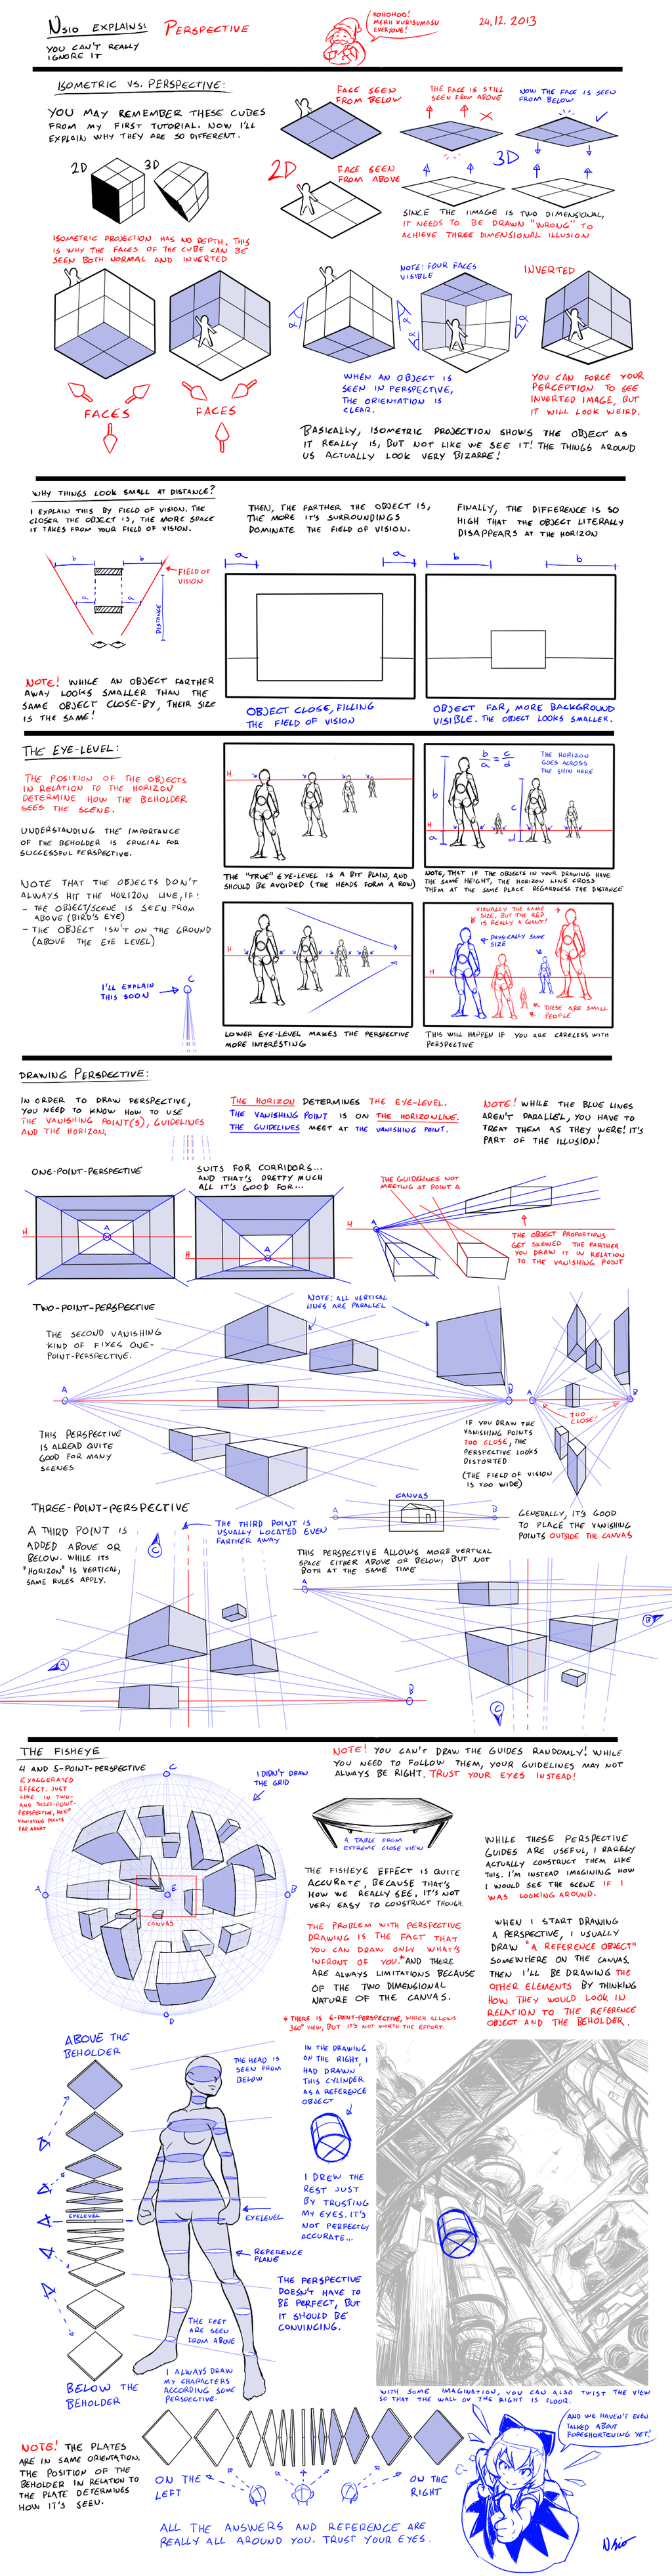 NSIO EXPLAINS: PERSPECTIVE
YOU CAN'T REALLY
IGNORE IT
HOHOHOO!
MERII KURISUMASU
EVERYONE!
24.12.2013
ISOMETRIC VS. PERSPECTIVE:
YOU MAY REMEMBER THESE CUBES
FROM MY FIRST TUTORIAL. NOW I'LL
EXPLAIN WHY THEY ARE SO DIFFERENT.
2D
3D
FACE SEEN
FROM BELOW
THE FACE IS STILL
SEEN FROM ABOVE
NOW THE FACE IS SEEN
FROM BELOW
2D
FACE SEEN
FROM ABOVE
3D
SINCE THE IMAGE IS TWO DIMENSIONAL,
IT NEEDS TO BE DRAWN "WRONG" TO
ACHIEVE THREE DIMENSIONAL ILLUSION
ISOMETRIC PROJECTION HAS NO DEPTH. THIS
IS WHY THE FACES OF THE CUBE CAN BE
SEEN BOTH NORMAL AND INVERTED
NOTE: FOUR FACES
VISIBLE
INVERTED
FACES
FACES
WHEN AN OBJECT IS
SEEN IN PERSPECTIVE,
THE ORIENTATION IS
CLEAR.
YOU CAN FORCE YOUR
PERCEPTION TO SEE
INVERTED IMAGE, BUT
IT WILL LOOK WEIRD.
BASICALLY, ISOMETRIC PROJECTION SHOWS THE OBJECT AS
IT REALLY IS, BUT NOT LIKE WE SEE IT! THE THINGS AROUND
US ACTUALLY LOOK VERY BIZARRE!
WHY THINGS LOOK SMALL AT DISTANCE?
I EXPLAIN THIS BY FIELD OF VISION. THE
CLOSER THE OBJECT IS, THE MORE SPACE
IT TAKES FROM YOUR FIELD OF VISION.
THEN, THE FARTHER THE OBJECT IS,
THE MORE IT'S SURROUNDINGS
DOMINATE THE FIELD OF VISION.
FINALLY, THE DIFFERENCE IS SO
HIGH THAT THE OBJECT LITERALLY
DISAPPEARS AT THE HORIZON
b b
a a
FIELD OF
VISION
DISTANCE
a a
b b
NOTE! WHILE AN OBJECT FARTHER
AWAY LOOKS SMALLER THAN THE
SAME OBJECT CLOSE-BY, THEIR SIZE
IS THE SAME!
OBJECT CLOSE, FILLING
THE FIELD OF VISION
OBJECT FAR, MORE BACKGROUND
VISIBLE. THE OBJECT LOOKS SMALLER.
THE EYE-LEVEL:
THE POSITION OF THE OBJECTS
IN RELATION TO THE HORIZON
DETERMINE HOW THE BEHOLDER
SEES THE SCENE.
UNDERSTANDING THE IMPORTANCE
OF THE BEHOLDER IS CRUCIAL FOR
SUCCESSFUL PERSPECTIVE.
NOTE THAT THE OBJECTS DON'T
ALWAYS HIT THE HORIZON LINE, IF:
- THE OBJECT/SCENE IS SEEN FROM
ABOVE (BIRD'S EYE)
- THE OBJECT ISN'T ON THE GROUND
(ABOVE THE EYE LEVEL)
I'LL EXPLAIN
THIS SOON
C
H
THE "TRUE" EYE-LEVEL IS A BIT PLAIN, AND
SHOULD BE AVOIDED (THE HEADS FORM A ROW)
b/a = c/d
THE HORIZON
GOES ACROSS
THE SHIN HERE
b
c
H
a
d
NOTE, THAT IF THE OBJECTS IN YOUR DRAWING HAVE
THE SAME HEIGHT, THE HORIZON LINE CROSS
THEM AT THE SAME PLACE REGARDLESS THE DISTANCE
H
LOWER EYE-LEVEL MAKES THE PERSPECTIVE
MORE INTERESTING
VISUALLY THE SAME
SIZE, BUT THE RED
IS REALLY A GIANT!
PHYSICALLY SAME
SIZE
H
THESE ARE SMALL
PEOPLE
THIS WILL HAPPEN IF YOU ARE CARELESS WITH
PERSPECTIVE
DRAWING PERSPECTIVE:
IN ORDER TO DRAW PERSPECTIVE,
YOU NEED TO KNOW HOW TO USE
THE VANISHING POINT(S), GUIDELINES
AND THE HORIZON.
THE HORIZON DETERMINES THE EYE-LEVEL.
THE VANISHING POINT IS ON THE HORIZONLINE.
THE GUIDELINES MEET AT THE VANISHING POINT.
NOTE! WHILE THE BLUE LINES
AREN'T PARALLEL, YOU HAVE TO
TREAT THEM AS THEY WERE! IT'S
PART OF THE ILLUSION!
ONE-POINT-PERSPECTIVE
SUITS FOR CORRIDORS...
AND THAT'S PRETTY MUCH
ALL IT'S GOOD FOR...
THE GUIDELINES NOT
MEETING AT POINT A
H
A
H
A
H
A
THE OBJECT PROPORTIONS
GET SKEWED THE FARTHER
YOU DRAW IT IN RELATION
TO THE VANISHING POINT
TWO-POINT-PERSPECTIVE
NOTE: ALL VERTICAL
LINES ARE PARALLEL
THE SECOND VANISHING
KIND OF FIXES ONE-
POINT-PERSPECTIVE.
A
B
A
B
TOO
CLOSE!
THIS PERSPECTIVE
IS ALREAD QUITE
GOOD FOR MANY
SCENES
IF YOU DRAW THE
VANISHING POINTS
TOO CLOSE, THE
PERSPECTIVE LOOKS
DISTORTED
(THE FIELD OF VISION
IS TOO WIDE)
CANVAS
A
B
GENERALLY, IT'S GOOD
TO PLACE THE VANISHING
POINTS OUTSIDE THE CANVAS
THREE-POINT-PERSPECTIVE
A THIRD POINT IS
ADDED ABOVE OR
BELOW. WHILE ITS
"HORIZON" IS VERTICAL,
SAME RULES APPLY.
THE THIRD POINT IS
USUALLY LOCATED EVEN
FARTHER AWAY
THIS PERSPECTIVE ALLOWS MORE VERTICAL
SPACE EITHER ABOVE OR BELOW, BUT NOT
BOTH AT THE SAME TIME
C
A
B
A
B
C
THE FISHEYE
4 AND 5-POINT-PERSPECTIVE
EXAGGERATED
EFFECT. JUST
LIKE IN TWO-
AND THREE-POINT-
PERSPECTIVE, KEEP
VANISHING POINTS
FAR APART
C
I DIDN'T DRAW
THE GRID
A
E
B
CANVAS
D
NOTE! YOU CAN'T DRAW THE GUIDES RANDOMLY! WHILE
YOU NEED TO FOLLOW THEM, YOUR GUIDELINES MAY NOT
ALWAYS BE RIGHT. TRUST YOUR EYES INSTEAD!
A TABLE FROM
EXTREME CLOSE VIEW
THE FISHEYE EFFECT IS QUITE
ACCURATE, BECAUSE THAT'S
HOW WE REALLY SEE. IT'S NOT
VERY EASY TO CONSTRUCT THOUGH.
THE PROBLEM WITH PERSPECTIVE
DRAWING IS THE FACT THAT
YOU CAN DRAW ONLY WHAT'S
INFRONT OF YOU.* AND THERE
ARE ALWAYS LIMITATIONS BECAUSE
OF THE TWO DIMENSIONAL
NATURE OF THE CANVAS.
* THERE IS 6-POINT-PERSPECTIVE, WHICH ALLOWS
360° VIEW, BUT IT'S NOT WORTH THE EFFORT
WHILE THESE PERSPECTIVE
GUIDES ARE USEFUL, I RARELY
ACTUALLY CONSTRUCT THEM LIKE
THIS. I'M INSTEAD IMAGINING HOW
I WOULD SEE THE SCENE IF I
WAS LOOKING AROUND.
WHEN I START DRAWING
A PERSPECTIVE, I USUALLY
DRAW "A REFERENCE OBJECT"
SOMEWHERE ON THE CANVAS.
THEN I'LL BE DRAWING THE
OTHER ELEMENTS BY THINKING
HOW THEY WOULD LOOK IN
RELATION TO THE REFERENCE
OBJECT AND THE BEHOLDER.
ABOVE THE
BEHOLDER
EYELEVEL
BELOW THE
BEHOLDER
THE HEAD IS
SEEN FROM
BELOW
EYELEVEL
REFERENCE
PLANE
THE FEET
ARE SEEN
FROM ABOVE
I ALWAYS DRAW
MY CHARACTERS
ACCORDING SOME
PERSPECTIVE.
IN THE DRAWING
ON THE RIGHT, I
HAD DRAWN
THIS CYLINDER
AS A REFERENCE
OBJECT
I DREW THE
REST JUST
BY TRUSTING
MY EYES. IT'S
NOT PERFECTLY
ACCURATE...
THE PERSPECTIVE
DOESN'T HAVE TO
BE PERFECT, BUT
IT SHOULD BE
CONVINCING.
WITH SOME IMAGINATION, YOU CAN ALSO TWIST THE VIEW
SO THAT THE WALL ON THE RIGHT IS FLOOR.
NOTE! THE PLATES
ARE IN SAME ORIENTATION.
THE POSITION OF THE
BEHOLDER IN RELATION TO
THE PLATE DETERMINES
HOW IT'S SEEN.
ON THE
LEFT
ON THE
RIGHT
AND WE HAVEN'T EVEN
TALKED ABOUT
FORESHORTENING YET!
ALL THE ANSWERS AND REFERENCE ARE
REALLY ALL AROUND YOU. TRUST YOUR EYES.
Nsio